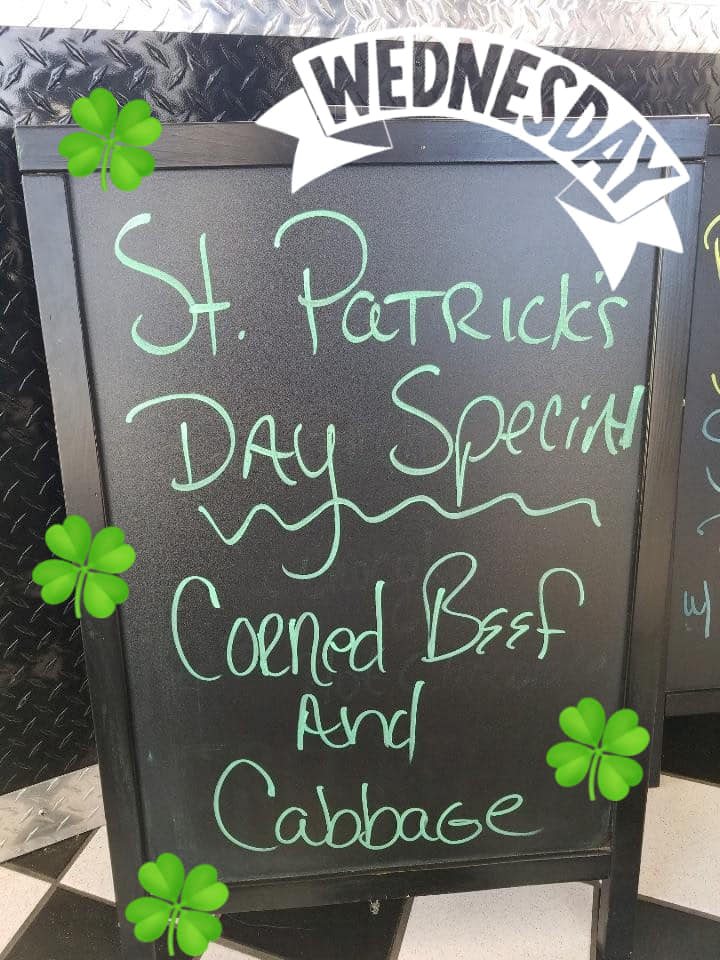 WEDNESDAY
St. PaTRick's
DAy Special
Corned Beef
And
Cabbage
w/